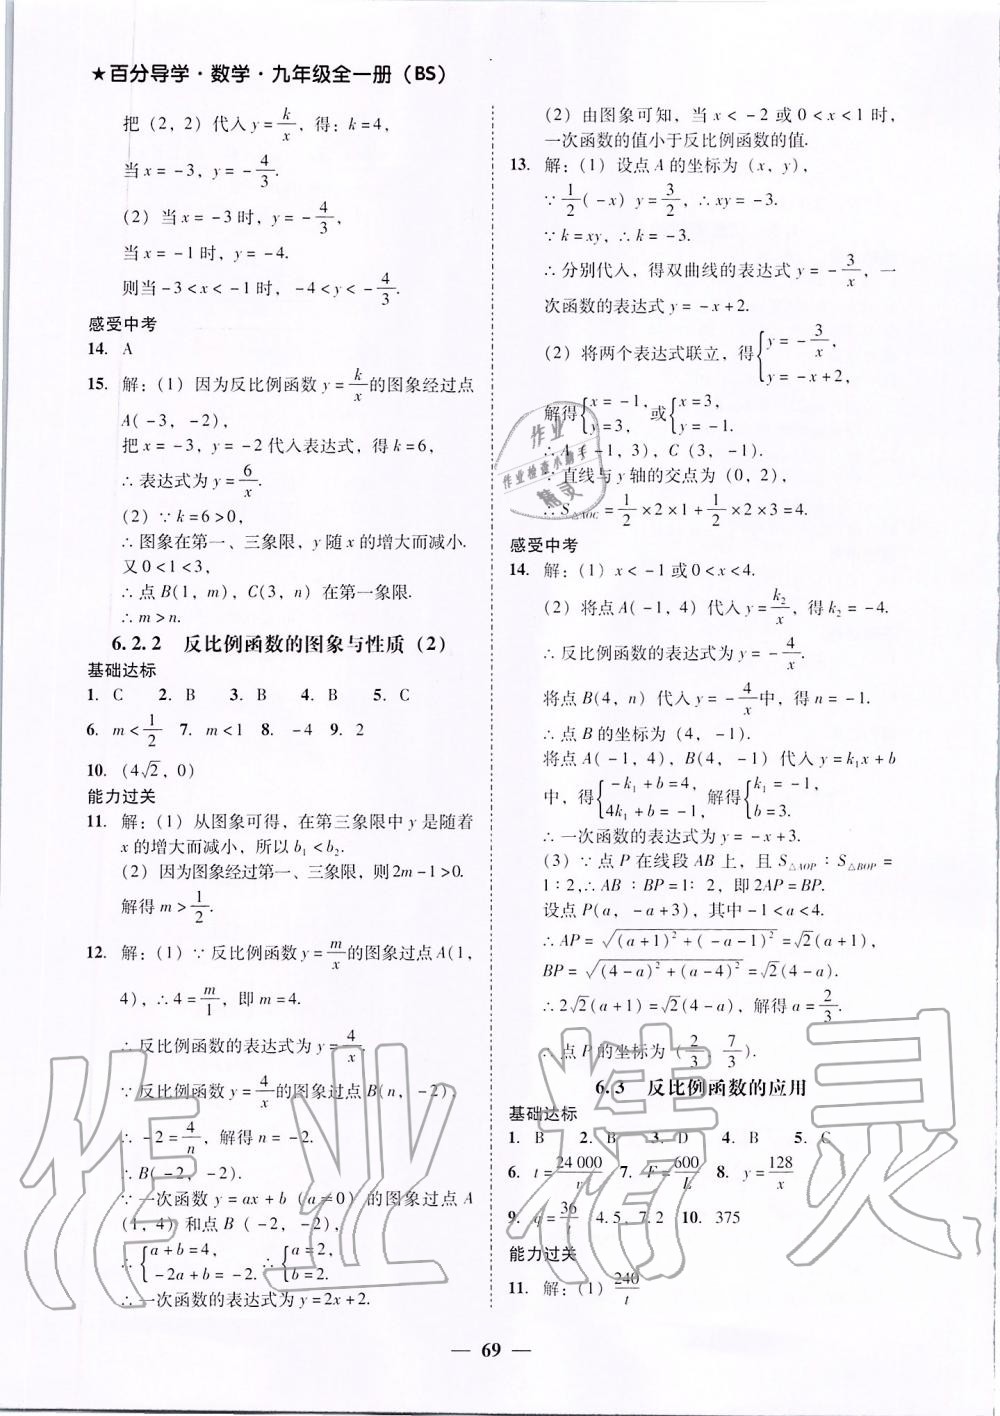 ★百分导学·数学·九年级全一册（BS）
把（2，2）代入 y=k/x，得：k=4，
当 x=-3，y=-4/3.
（2）当 x=-3 时，y=-4/3，
当 x=-1 时，y=-4.
则当 -3<x<-1 时，-4<y<-4/3.
感受中考
14. A
15. 解：（1）因为反比例函数 y=k/x 的图象经过点
A（-3，-2），
把 x=-3，y=-2 代入表达式，得 k=6，
∴表达式为 y=6/x.
（2）∵k=6>0，
∴图象在第一、三象限，y 随 x 的增大而减小.
又0<1<3，
∴点 B（1，m），C（3，n）在第一象限.
∴m>n.
6.2.2 反比例函数的图象与性质（2）
基础达标
1. C 2. B 3. B 4. B 5. C
6. m<1/2 7. m<1 8. -4 9. 2
10. （4√2，0）
能力过关
11. 解：（1）从图象可得，在第三象限中 y 是随着
x 的增大而减小，所以 b₁<b₂.
（2）因为图象经过第一、三象限，则2m-1>0.
解得 m>1/2.
12. 解：（1）∵反比例函数 y=m/x 的图象过点A（1，
4），∴4=m/1，即 m=4.
∴反比例函数的表达式为 y=4/x.
∵反比例函数 y=4/x 的图象过点B（n，-2），
∴-2=4/n，解得 n=-2.
∴B（-2，-2）.
∵一次函数 y=ax+b（a≠0）的图象过点 A
（1，4）和点 B（-2，-2），
∴{a+b=4，-2a+b=-2. ∴{a=2，b=2.
∴一次函数的表达式为 y=2x+2.
（2）由图象可知，当 x<-2 或 0<x<1 时，
一次函数的值小于反比例函数的值.
13. 解：（1）设点 A 的坐标为（x，y），
∵1/2(-x)y=3/2，∴xy=-3.
∵k=xy，∴k=-3.
∴分别代入，得双曲线的表达式 y=-3/x，一
次函数的表达式 y=-x+2.
（2）将两个表达式联立，得{y=-3/x，y=-x+2，
解得{x=-1，y=3，或{x=3，y=-1.
∴A（-1，3），C（3，-1）.
∵直线与 y 轴的交点为（0，2），
∴S△AOC=1/2×2×1+1/2×2×3=4.
感受中考
14. 解：（1）x<-1 或 0<x<4.
（2）将点A（-1，4）代入 y=k₂/x，得 k₂=-4.
∴反比例函数的表达式为 y=-4/x.
将点B（4，n）代入 y=-4/x 中，得 n=-1.
∴点 B 的坐标为（4，-1）.
将点A（-1，4），B（4，-1）代入 y=k₁x+b
中，得{-k₁+b=4，4k₁+b=-1，解得{k₁=-1，b=3.
∴一次函数的表达式为 y=-x+3.
（3）∵点 P 在线段 AB 上，且 S△AOP∶S△BOP=
1∶2，∴AB∶BP=1∶2，即2AP=BP.
设点P（a，-a+3），其中-1<a<4.
∴AP=√((a+1)²+(-a-1)²)=√2(a+1)，
BP=√((4-a)²+(a-4)²)=√2(4-a).
∴2√2(a+1)=√2(4-a)，解得 a=2/3.
∴点 P 的坐标为（2/3，7/3）.
6.3 反比例函数的应用
基础达标
1. B 2. B 3. D 4. B 5. C
6. t=24 000/v 7. F=600/L 8. y=128/x
9. q=36/t 4.5 7.2 10. 375
能力过关
11. 解：（1）240/t
— 69 —
作业
作业检查小助手
精灵
作业精灵